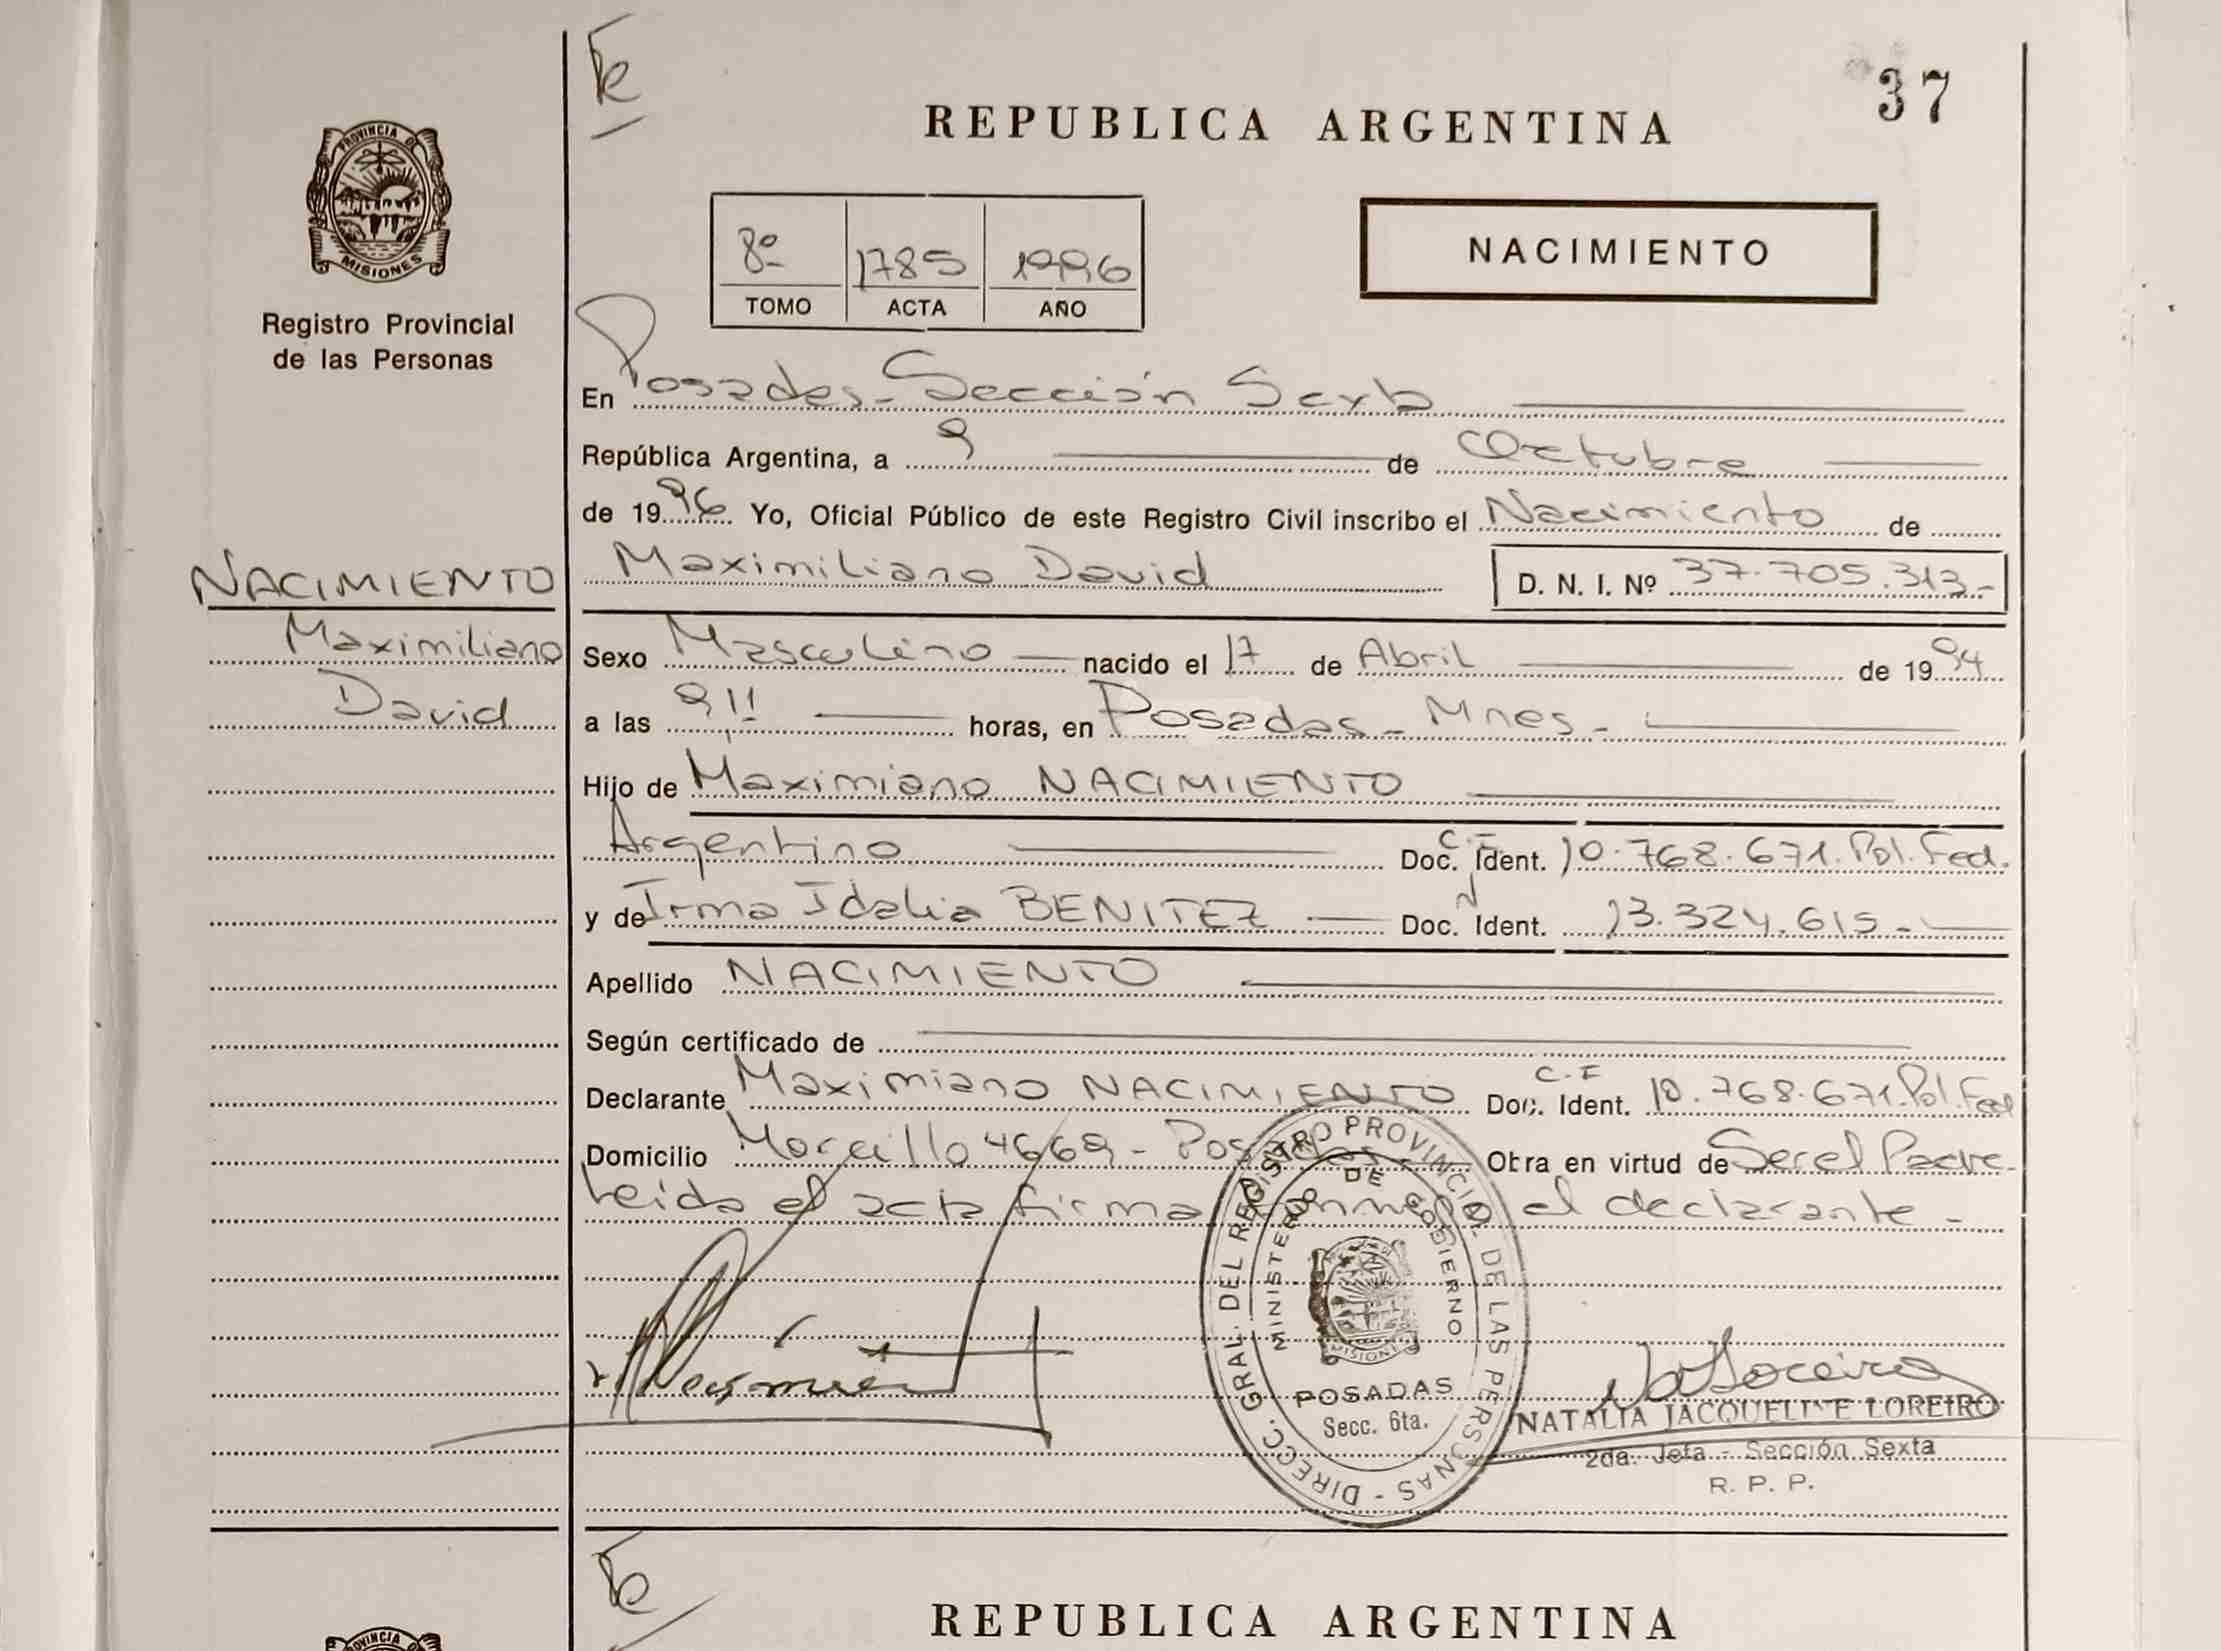 37
REPUBLICA ARGENTINA
PROVINCIA DE MISIONES
Registro Provincial
de las Personas
NACIMIENTO
8º 1785 1996
TOMO ACTA AÑO
En Posadas - Sección Sexta
República Argentina, a 9 de Octubre
de 1996 Yo, Oficial Público de este Registro Civil inscribo el Nacimiento de
Maximiliano David D. N. I. Nº 37.705.313.-
NACIMIENTO
Maximiliano
David
Sexo Masculino nacido el 17 de Abril de 1994
a las 9 horas, en Posadas - Mnes -
Hijo de Maximiano NACIMIENTO
Argentino Doc. Ident. C.I 10.768.671. Pol. Fed.
y de Irma Idalia BENITEZ Doc. Ident. 13.324.615 -
Apellido NACIMIENTO
Según certificado de
Declarante Maximiano NACIMIENTO Doc. Ident. C.I 10.768.671. Pol. Fed
Domicilio 4669 - Posadas - Obra en virtud de Ser el Padre -
Leida el acta firma conmigo el declarante -
DIRECC. GRAL. DEL REGISTRO PROVINCIAL DE LAS PERSONAS -
MINISTERIO DE GOBIERNO
MISIONES
POSADAS
Secc. 6ta.
NATALIA JACQUELINE LOREIRO
2da. Jefa - Sección Sexta
R. P. P.
REPUBLICA ARGENTINA